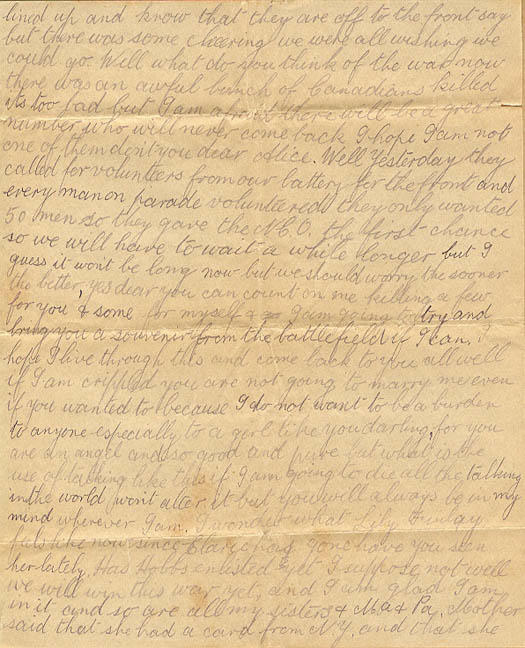 lined up and know that they are off to the front say
but there was some cheering we were all wishing we
could go. Well what do you think of the war now
there was an awful bunch of Canadians killed
its too bad but I am afraid there will be a great
number who will never come back I hope I am not
one of them dont you dear Alice. Well Yesterday they
called for volunteers from our battery for the front and
every man on parade volunteered they only wanted
50 men so they gave the N.C.O. the first chance
so we will have to wait a while longer but I
guess it won't be long now but we should worry the sooner
the better, yes dear you can count on me killing a few
for you & some for myself & I am going to try and
bring you a souvenir from the battlefield if I can, I
hope I live through this and come back to you all well
if I am crippled you are not going to marry me even
if you wanted to because I do not want to be a burden
to anyone especially to a girl like you darling, for you
are an angel and so good and pure but what is the
use of talking like this if I am going to die all the talking
in the world won't alter it but you will always be in my
mind wherever I am. I wonder what Lily Finlay
feels like now since Clarie has gone have you seen
her lately, Has Hobbs enlisted yet I suppose not well
we will win this war yet, and I am glad I am
in it and so are all my sisters & Ma & Pa. Mother
said that she had a card from N.Y. and that she